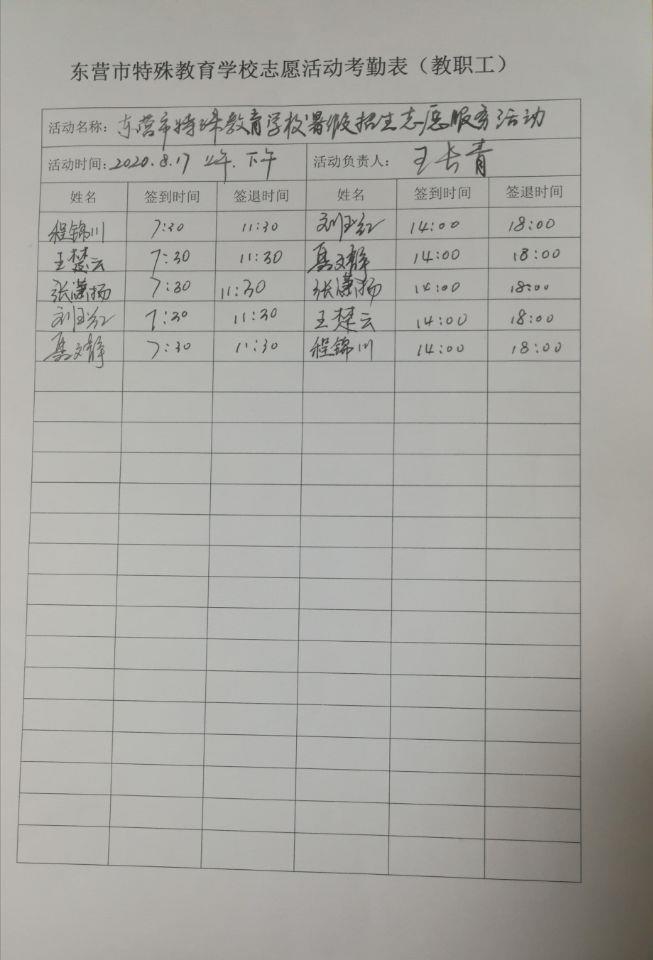 东营市特殊教育学校志愿活动考勤表（教职工）
活动名称：东营市特殊教育学校暑假招生志愿服务活动
活动时间：2020.8.17 上午.下午 活动负责人：王长青
姓名 签到时间 签退时间 姓名 签到时间 签退时间
程锦川 7:30 11:30 刘玉红 14:00 18:00
王楚云 7:30 11:30 文静 14:00 18:00
张潇扬 7:30 11:30 张潇扬 14:00 18:00
刘玉红 7:30 11:30 王楚云 14:00 18:00
文静 7:30 11:30 程锦川 14:00 18:00